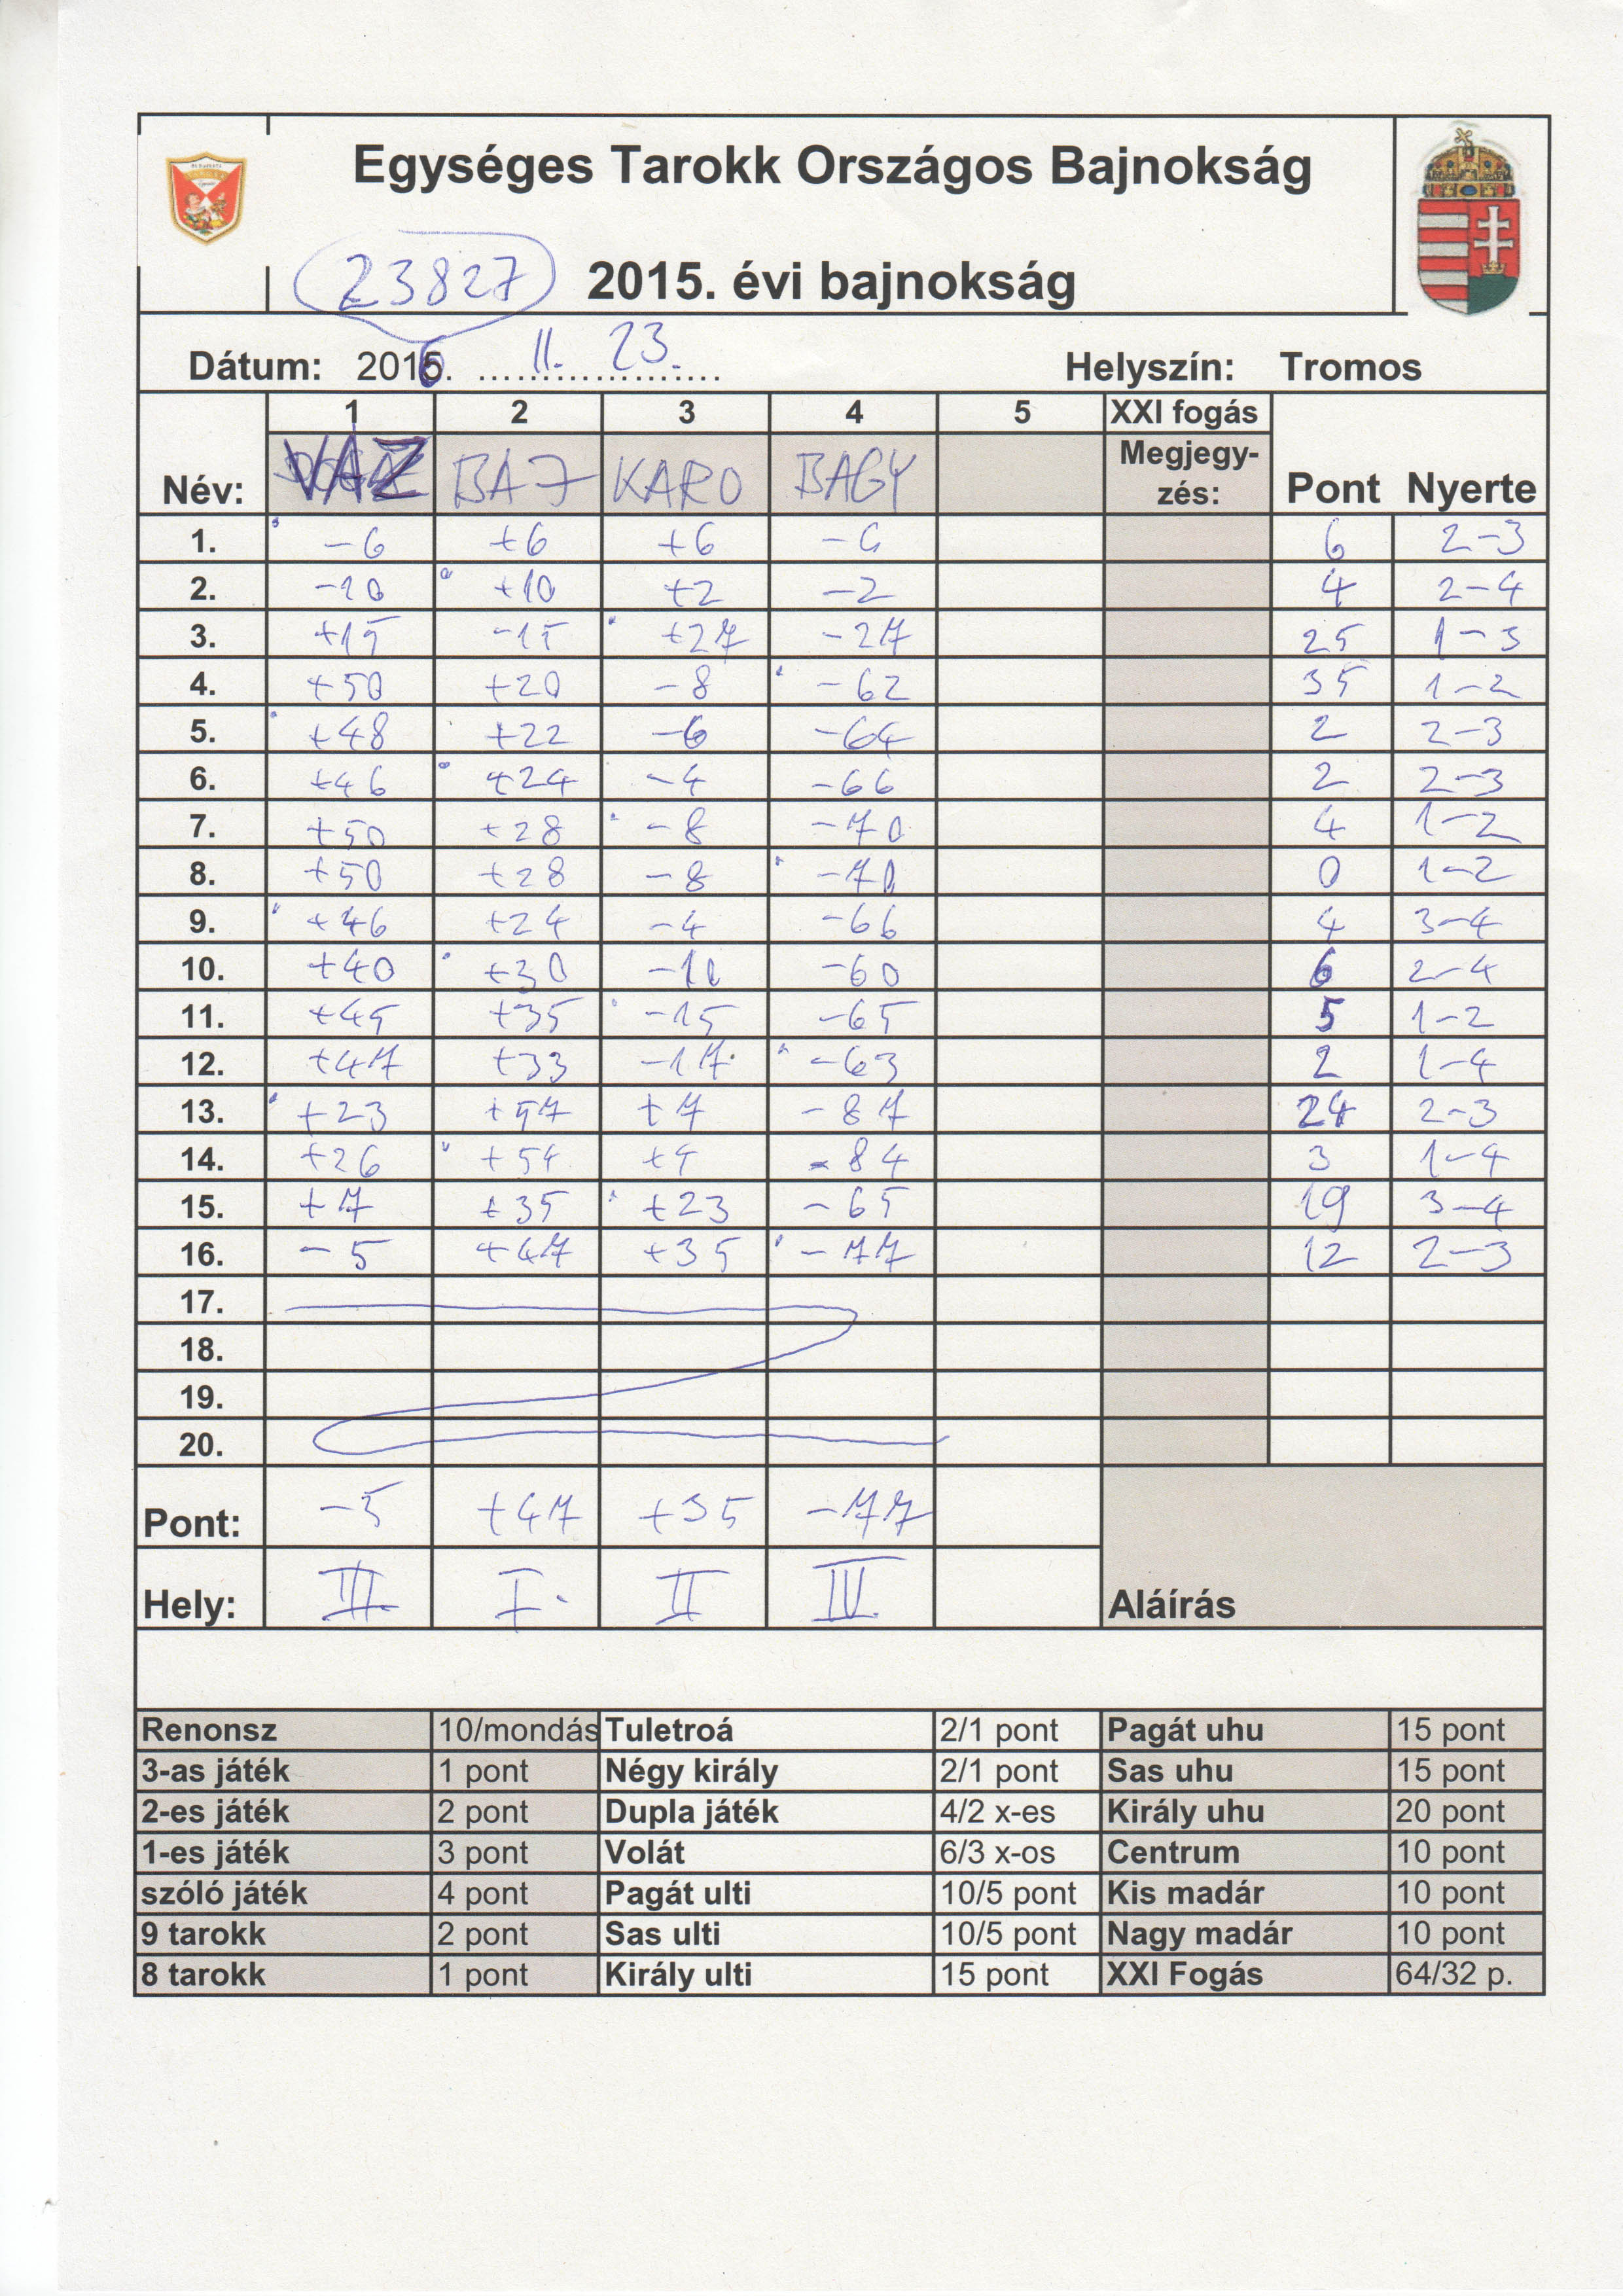 Egységes Tarokk Országos Bajnokság
23827 2015. évi bajnokság
Dátum: 2016. 11. 23. Helyszín: Tromos
1 2 3 4 5 XXI fogás
Név: VÁZ BAJ KARO BAGY Megjegy-zés: Pont Nyerte
1. -6 +6 +6 -6 6 2-3
2. -10 +10 +2 -2 4 2-4
3. +15 -15 +27 -27 25 1-3
4. +50 +20 -8 -62 35 1-2
5. +48 +22 -6 -64 2 2-3
6. +46 +24 -4 -66 2 2-3
7. +50 +28 -8 -70 4 1-2
8. +50 +28 -8 -70 0 1-2
9. +46 +24 -4 -66 4 3-4
10. +40 +30 -10 -60 6 2-4
11. +45 +35 -15 -65 5 1-2
12. +47 +33 -17 -63 2 1-4
13. +23 +57 +7 -87 24 2-3
14. +26 +54 +4 -84 3 1-4
15. +7 +35 +23 -65 19 3-4
16. -5 +47 +35 -77 12 2-3
17.
18.
19.
20.
Pont: -5 +47 +35 -77
Hely: III. I. II IV.
Aláírás
Renonsz 10/mondás Tuletroá 2/1 pont Pagát uhu 15 pont
3-as játék 1 pont Négy király 2/1 pont Sas uhu 15 pont
2-es játék 2 pont Dupla játék 4/2 x-es Király uhu 20 pont
1-es játék 3 pont Volát 6/3 x-os Centrum 10 pont
szóló játék 4 pont Pagát ulti 10/5 pont Kis madár 10 pont
9 tarokk 2 pont Sas ulti 10/5 pont Nagy madár 10 pont
8 tarokk 1 pont Király ulti 15 pont XXI Fogás 64/32 p.